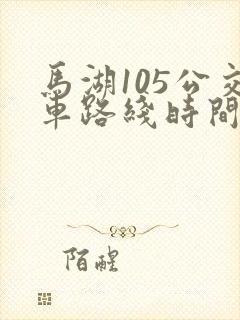 馬湖105公交
車路綫時間
陌醒